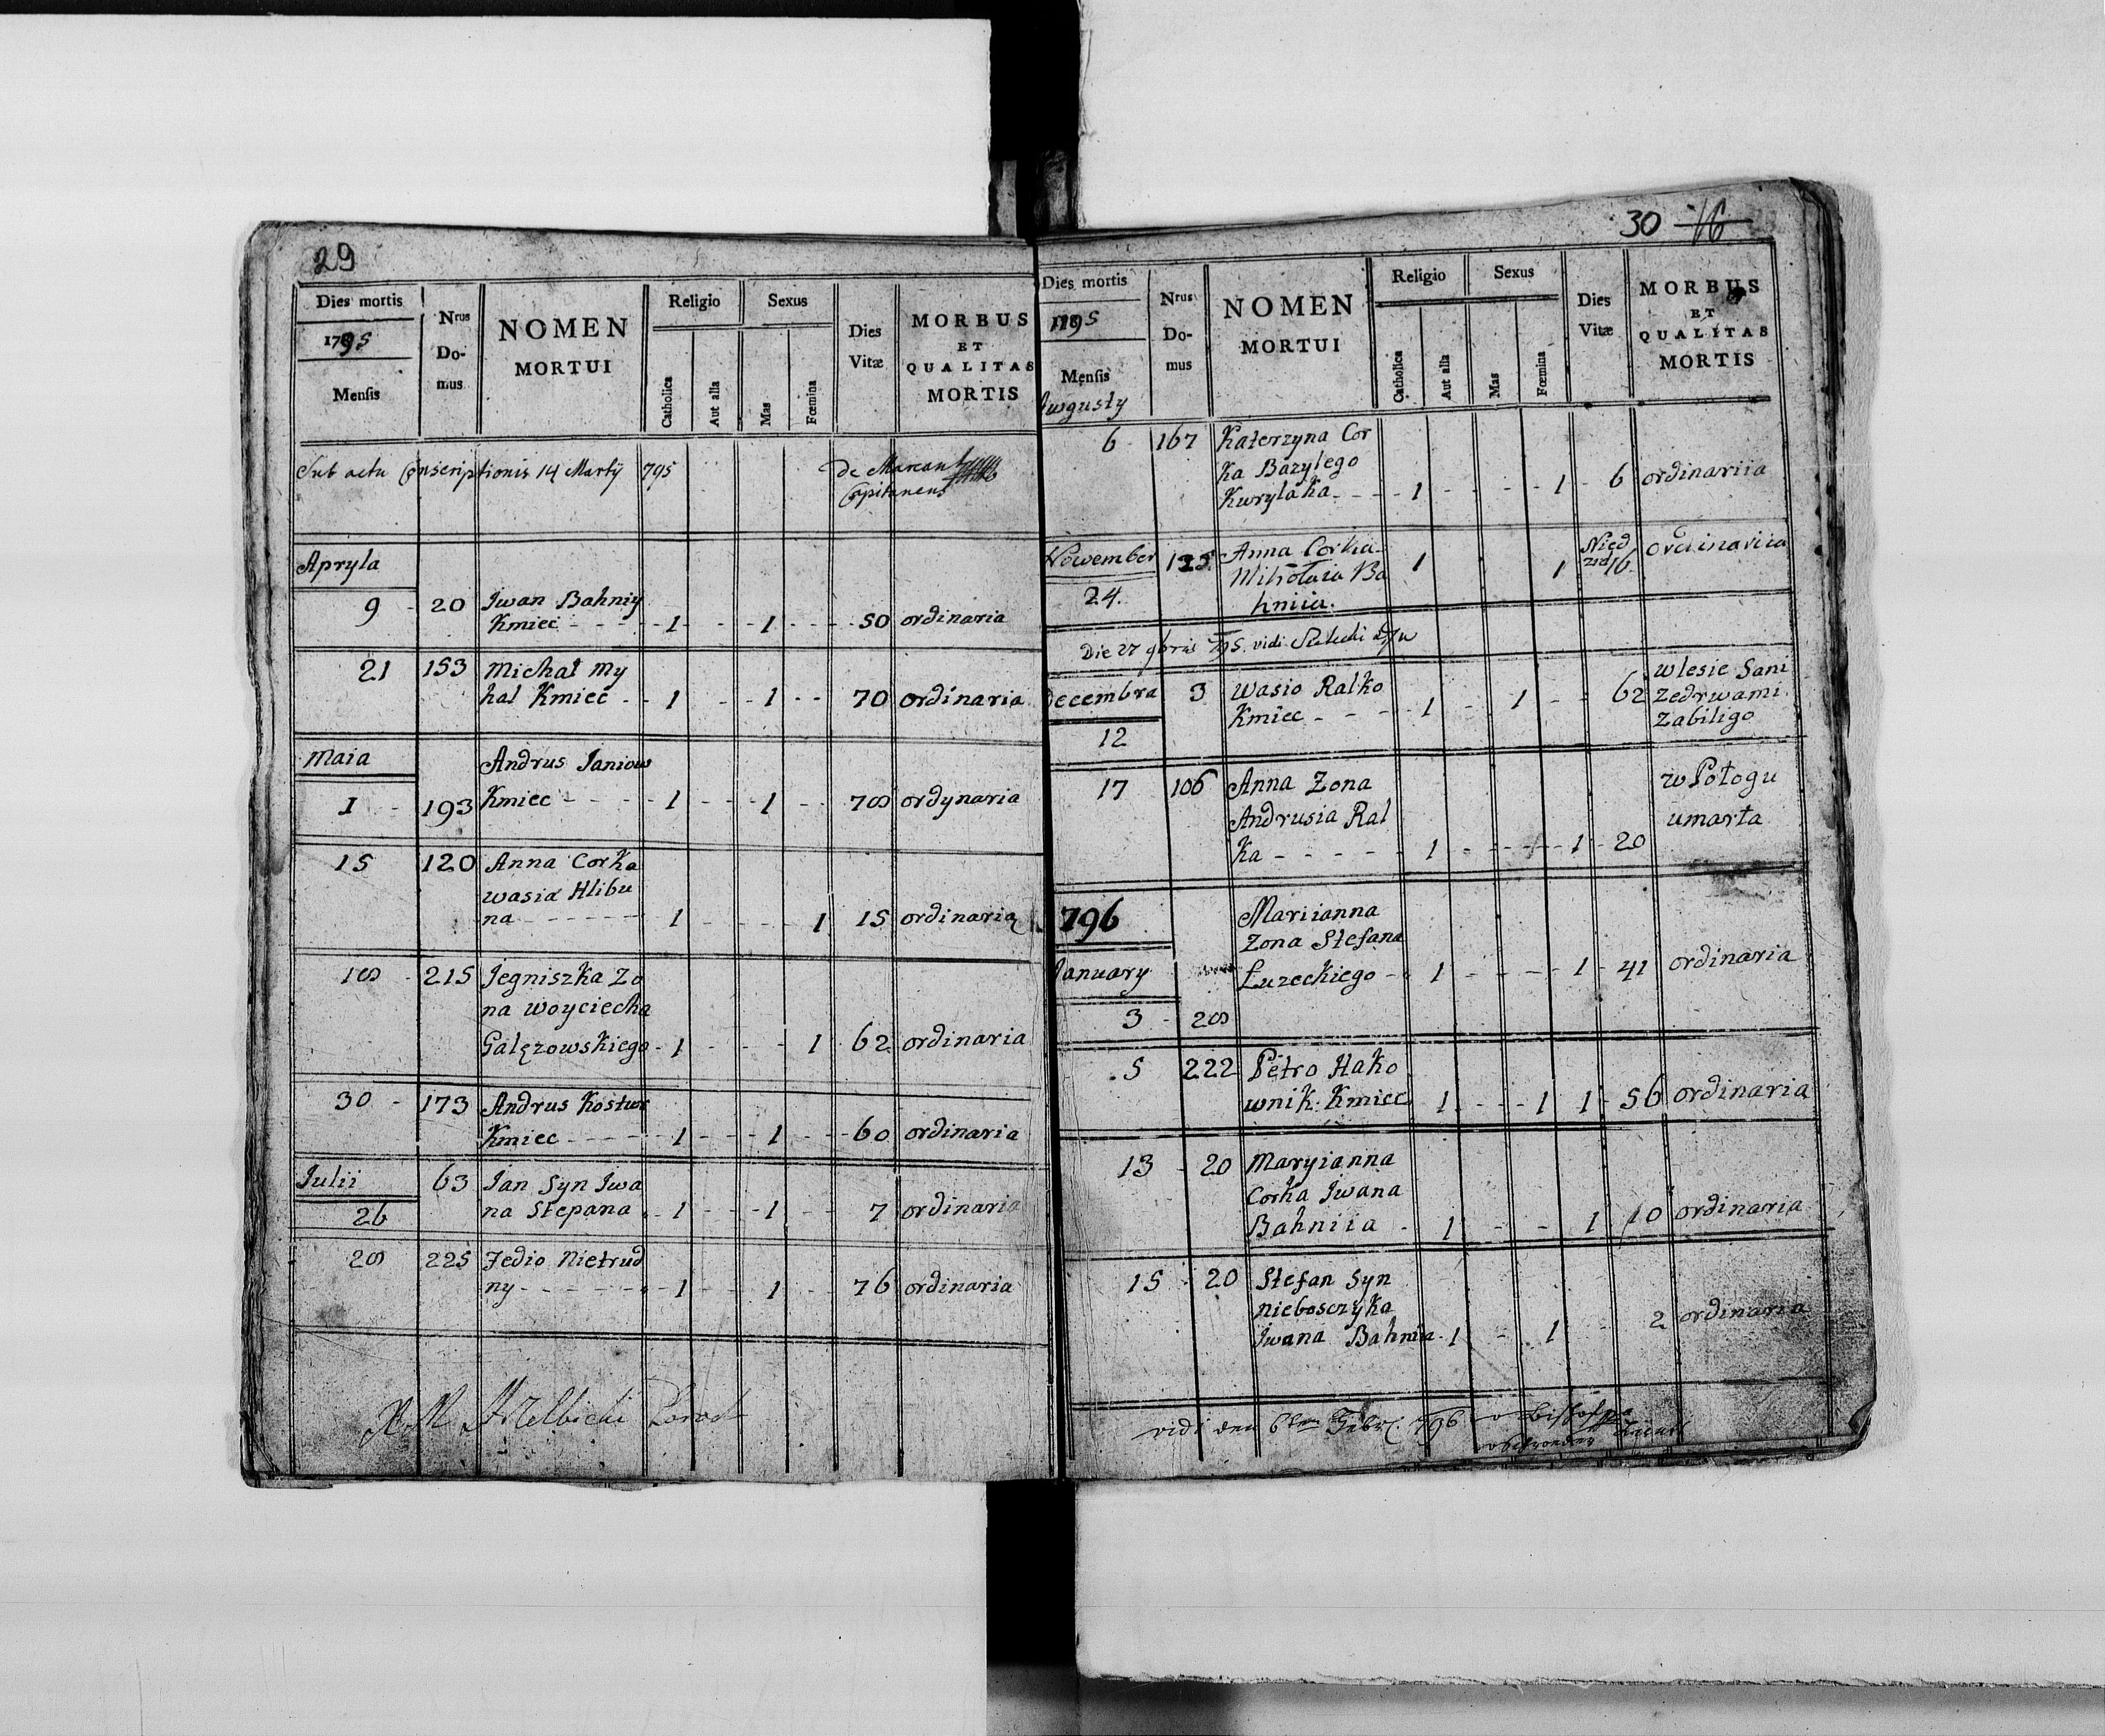 29
Dies mortis
1795
Mensis
Nrus
Do-
mus
NOMEN
MORTUI
Religio
Catholica
Aut alia
Sexus
Mas
Fœmina
Dies
Vitæ
MORBUS
ET
QUALITAS
MORTIS
Sub actu Conscriptionis 14 Martÿ 795
Apryla
9 - 20 Iwan Bahniy
Kmiec - - - - 1 - - - 1 - - - 50 ordinaria
21 153 Michał My
hal Kmiec - - 1 - - 1 - - 70 ordinaria
Maia
Andrus Janiow
1 - 193 Kmiec - - - - 1 - - - 1 - - 78 ordynaria
15 120 Anna Corka
wasia Hlibu
na - - - - - - 1 - - - - 1 15 ordinaria
18 - 215 Jegniszka Zo
na Woyciecha
Galęzowskiego - 1 - - - - 1 62 ordinaria
30 - 173 Andrus Kostur
Kmiec - - - - - 1 - - - 1 - - - 60 ordinaria
Iulii
63 Jan Syn Iwa
26
na Stepana - 1 - - - 1 - - 7 ordinaria
28 225 Fedio Nietrud
ny - - - - - - 1 - - 1 - - 76 ordinaria
30 16
Dies mortis
1795
Mensis
Nrus
Do-
mus
NOMEN
MORTUI
Religio
Catholica
Aut alia
Sexus
Mas
Fœmina
Dies
Vitæ
MORBUS
ET
QUALITAS
MORTIS
Awgusty
6 167 Katerzyna Cor
ka Bazylego
Kuryłaka - - - 1 - - - - 1 - 6 ordinariia
Nowember 125 Anna Corka
Mikołaia Ba 1 1 Nied
zel 16 ordinariia
24. hniia.
Die 27 9bris 795 vidi
Decembra 3 Wasio Ralko
Kmiec - - - 1 - - 1 - - 62
12
w lesie Sani
zedrwami
zabiligo
17 106 Anna Zona
Andrusia Ral
ka - - - - - 1 - - - - - 1 - 20
w Połogu
umarła
796
January
3 - 28
Mariianna
Zona Stefana
Łuzeckiego - - 1 - - - - 1 - 41 ordinaria
5 222 Petro Hako
wnik Kmiec 1 - - - 1 1 - 56 ordinaria
13 - 20 Maryianna
Corka Iwana
Bahniia - 1 - - - 1 10 ordinaria
15 - 20 Stefan Syn
nieboszczyka
Iwana Bahniia - 1 - - 1 - - 2 ordinaria
vidi den 6ten Febr. 796